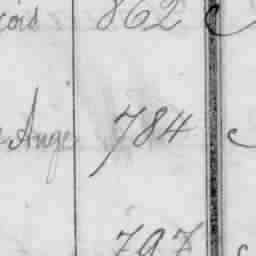 çois 862
Ange 784
797